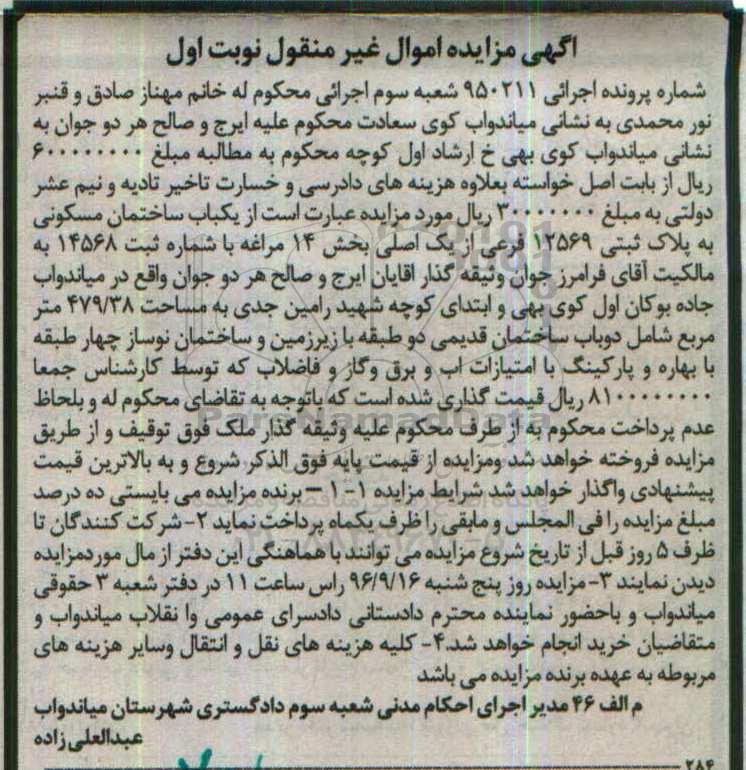 آگهی مزایده اموال غیر منقول نوبت اول
شماره پرونده اجرائی ۹۵۰۲۱۱ شعبه سوم اجرائی محکوم له خانم مهناز صادق و قنبر
نور محمدی به نشانی میاندواب کوی سعادت محکوم علیه ایرج و صالح هر دو جوان به
نشانی میاندواب کوی بهی خ ارشاد اول کوچه محکوم به مطالبه مبلغ ۶۰۰۰۰۰۰۰۰
ریال از بابت اصل خواسته بعلاوه هزینه های دادرسی و خسارت تاخیر تادیه و نیم عشر
دولتی به مبلغ ۳۰۰۰۰۰۰۰ ریال مورد مزایده عبارت است از یکباب ساختمان مسکونی
به پلاک ثبتی ۱۲۵۶۹ فرعی از یک اصلی بخش ۱۴ مراغه با شماره ثبت ۱۴۵۶۸ به
مالکیت آقای فرامرز جوان وثیقه گذار اقایان ایرج و صالح هر دو جوان واقع در میاندواب
جاده بوکان اول کوی بهی و ابتدای کوچه شهید رامین جدی به مساحت ۴۷۹/۳۸ متر
مربع شامل دوباب ساختمان قدیمی دو طبقه با زیرزمین و ساختمان نوساز چهار طبقه
با بهاره و پارکینگ با امتیازات اب و برق وگاز و فاضلاب که توسط کارشناس جمعا
۸۱۰۰۰۰۰۰۰۰ ریال قیمت گذاری شده است که باتوجه به تقاضای محکوم له و بلحاظ
عدم پرداخت محکوم به از طرف محکوم علیه وثیقه گذار ملک فوق توقیف و از طریق
مزایده فروخته خواهد شد ومزایده از قیمت پایه فوق الذکر شروع و به بالاترین قیمت
پیشنهادی واگذار خواهد شد شرایط مزایده ۱-۱ – برنده مزایده می بایستی ده درصد
مبلغ مزایده را فی المجلس و مابقی را ظرف یکماه پرداخت نماید ۲- شرکت کنندگان تا
ظرف ۵ روز قبل از تاریخ شروع مزایده می توانند با هماهنگی این دفتر از مال موردمزایده
دیدن نمایند ۳- مزایده روز پنج شنبه ۹۶/۹/۱۶ راس ساعت ۱۱ در دفتر شعبه ۳ حقوقی
میاندواب و باحضور نماینده محترم دادستانی دادسرای عمومی وا نقلاب میاندواب و
متقاضیان خرید انجام خواهد شد.۴- کلیه هزینه های نقل و انتقال وسایر هزینه های
مربوطه به عهده برنده مزایده می باشد
م الف ۴۶ مدیر اجرای احکام مدنی شعبه سوم دادگستری شهرستان میاندواب
عبدالعلی زاده
۲۸۶
ParsNamadData